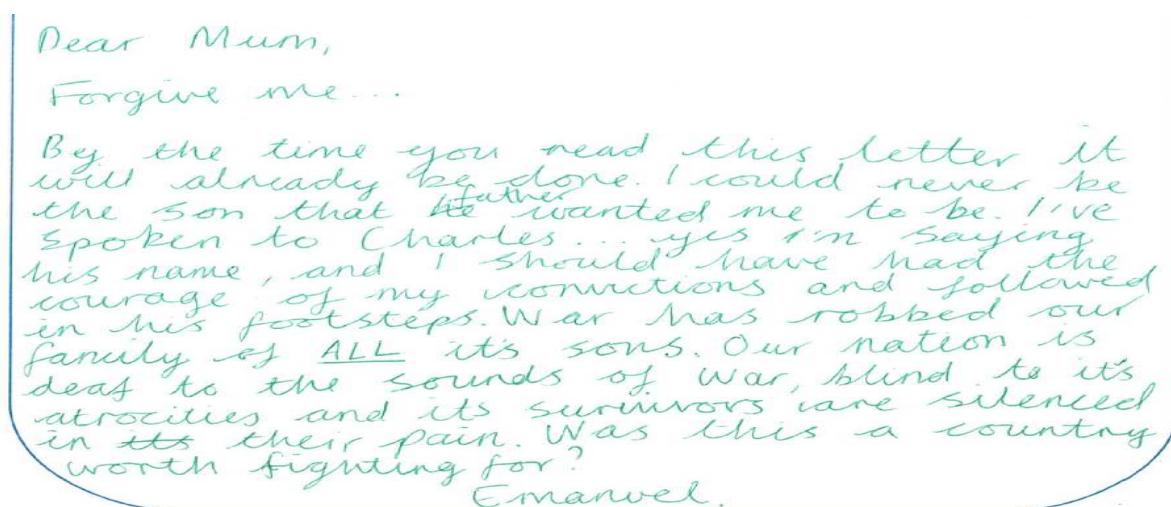 Dear Mum,
Forgive me...
By the time you read this letter it
will already be done. I could never be
the son that father wanted me to be. I've
spoken to Charles... yes I'm saying
his name, and I should have had the
courage of my convictions and followed
in his footsteps. War has robbed our
family of ALL it's sons. Our nation is
deaf to the sounds of war, blind to it's
atrocities and its survivors are silenced
in its their pain. Was this a country
worth fighting for?
Emanuel.